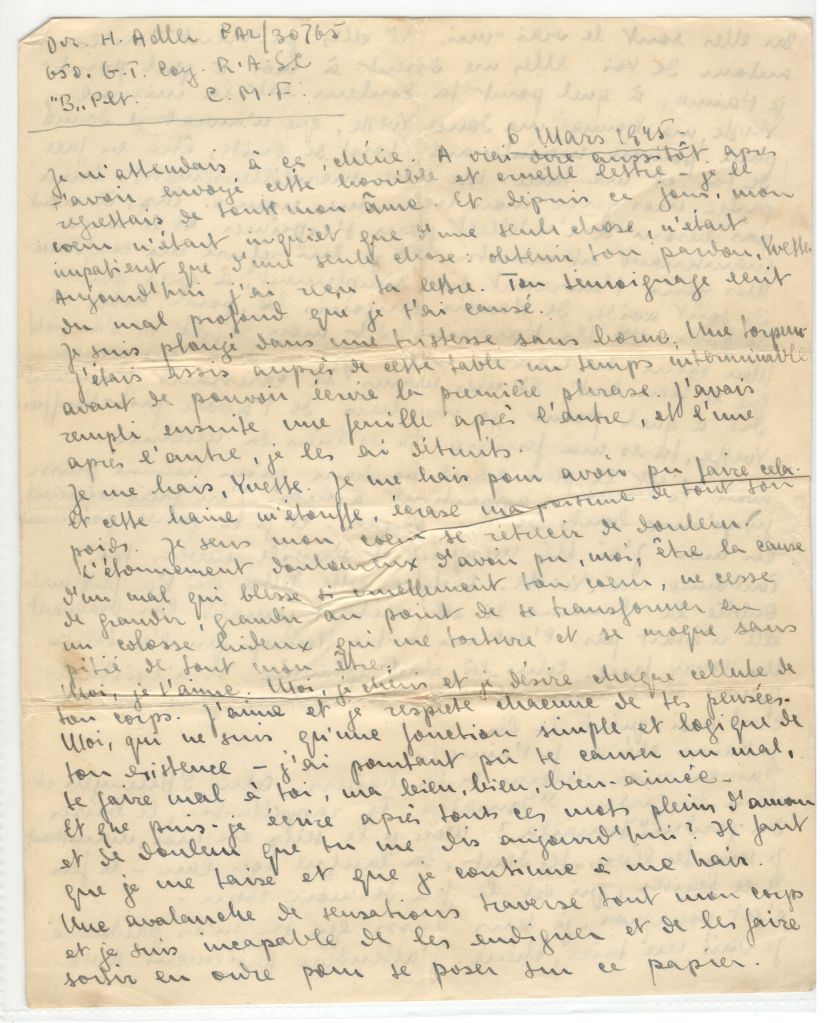 Dvr. H. Adler PAL/30765
650. G.T. Coy. R.A.S.C
"B" Plt. C.M.F.
6 Mars 1945-
Je m'attendais à ça, chérie. A vrai dire aussitôt après
t'avoir envoyé cette horrible et cruelle lettre - je le
regrettais de tout mon âme. Et depuis ce jour, mon
coeur n'était inquiet que d'une seule chose, n'était
impatient que d'une seule chose: obtenir ton pardon, Yvette.
Aujourd'hui j'ai reçu ta lettre. Ton témoignage écrit
du mal profond que je t'ai causé.
Je suis plongé dans une tristesse sans borne. Une torpeur.
J'étais assis auprès de cette table un temps interminable
avant de pouvoir écrire la première phrase. J'avais
rempli ensuite une feuille après l'autre, et l'une
après l'autre, je les ai détruits.
Je me hais, Yvette. Je me hais pour avoir pu faire cela.
et cette haine m'étouffe, écrase ma poitrine de tout son
poids. Je sens mon coeur se rétrécir de douleur.
L'étonnement douloureux d'avoir pu, moi, être la cause
d'un mal qui blesse si cruellement ton coeur, ne cesse
de grandir, grandir au point de se transformer en
un colosse hideux qui me torture et se moque sans
pitié de tout mon être.
Moi, je t'aime. Moi, je chéris et je désire chaque cellule de
ton corps. J'aime et je respecte chacune de tes pensées.
Moi, qui ne suis qu'une fonction simple et logique de
ton existence - j'ai pourtant pû te causer un mal,
te faire mal à toi, ma bien, bien, bien-aimée-
Et que puis-je écrire après touts ces mots pleins d'amour
et de douleur que tu me dis aujourd'hui? Il faut
que je me taise et que je continue à me hair.
Une avalanche de sensations traverse tout mon corps
et je suis incapable de les endiguer et de les faire
sortir en ordre pour se poser sur ce papier.